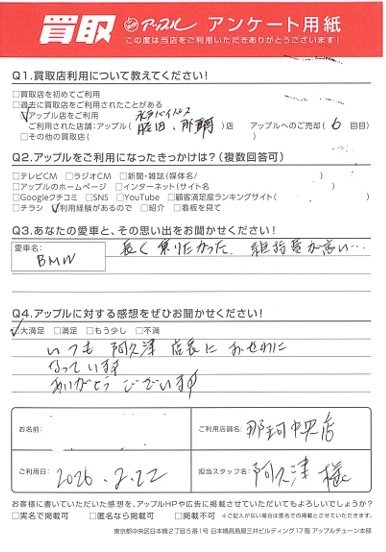 買取 アップル アンケート用紙
この度は当店をご利用いただきありがとうございます!
Q1.買取店利用について教えてください!
□買取店を初めてご利用
□過去に買取店をご利用されたことがある
□アップル店をご利用
水戸バイパス
ご利用された店舗:アップル( 那珊 )店 アップルへのご売却( 6 回目)
□その他の買取店( )
Q2.アップルをご利用になったきっかけは?(複数回答可)
□テレビCM □ラジオCM □新聞・雑誌(媒体名/ )
□アップルのホームページ □インターネット(サイト名 )
□Googleクチコミ □SNS □YouTube □顧客満足度ランキング(サイト )
□チラシ □利用経験があるので □紹介 □看板を見て
Q3.あなたの愛車と、その思い出をお聞かせください!
愛車名: 長く乗りたかった 維持費が高い…
BMW
Q4.アップルに対する感想をぜひお聞かせください!
□大満足 □満足 □もう少し □不満
いつも 阿久津 店長に おせわに
なっています
ありがとう ございます
お名前: ご利用店舗名: 那珂中央店
ご利用日: 2026.2.22 担当スタッフ名: 阿久津 様
お客様に書いていただいた感想を、アップルHPや広告に掲載させていただいてもよろしいでしょうか?
□実名で掲載可 □匿名なら掲載可 □掲載不可 ※ご記入がない場合は匿名での掲載とさせていただきます。
東京都中央区日本橋2丁目5番1号 日本橋高島屋三井ビルディング17階 アップルチェーン本部